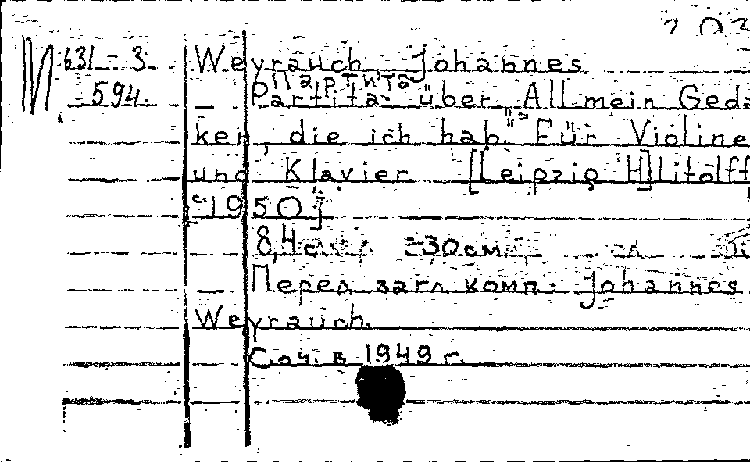 203
М 631-3 Weyrauch Johannes
594. Партита
— Partita über „Allmein Gedan
ken, die ich hab". Für Violine
und Klavier [Leipzig H]litolff
c 1950]
8,4 с. 30см.
— Перед загл. комп.: Johannes
Weyrauch.
Соч. в 1949 г.